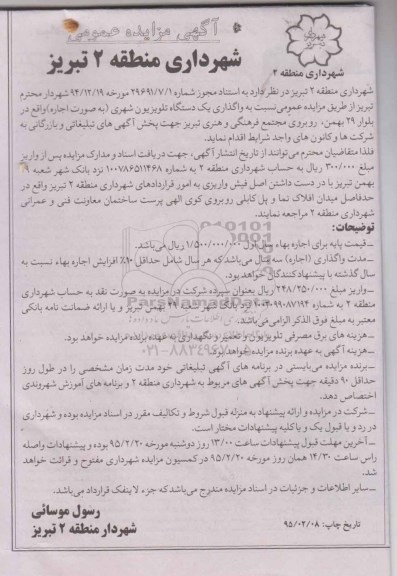 آگهی مزایده عمومی
شهرداری منطقه ۲ تبریز
شهرداری منطقه ۲
شهرداری منطقه ۲ تبریز در نظر دارد به استناد مجوز شماره ۲۹۶۹۱/۷/۱ مورخه ۹۴/۱۲/۱۹ شهردار محترم
تبریز از طریق مزایده عمومی نسبت به واگذاری یک دستگاه تلویزیون شهری (به صورت اجاره) واقع در
بلوار ۲۹ بهمن، روبروی مجتمع فرهنگی و هنری تبریز جهت پخش آگهی های تبلیغاتی و بازرگانی به
شرکت ها و کانون های واجد شرایط اقدام نماید.
فلذا متقاضیان محترم می‌توانند از تاریخ انتشار آگهی، جهت دریافت اسناد و مدارک مزایده پس از واریز
مبلغ ۳۰۰/۰۰۰ ریال به حساب شهرداری منطقه ۲ به شماره ۱۰۰۷۸۶۵۱۱۴۶۸ نزد بانک شهر شعبه ۲۹
بهمن تبریز با در دست داشتن اصل فیش واریزی به امور قراردادهای شهرداری منطقه ۲ تبریز واقع در
حدفاصل میدان افلاک نما و پل کابلی روبروی کوی الهی پرست ساختمان معاونت فنی و عمرانی
شهرداری منطقه ۲ مراجعه نمایند.
توضیحات:
ـ قیمت پایه برای اجاره بهاء سال اول ۱/۵۰۰/۰۰۰/۰۰۰ ریال می‌باشد.
ـ مدت واگذاری (اجاره) سه سال می‌باشد که هر سال شامل حداقل ۱۰٪ افزایش اجاره بهاء نسبت به
سال گذشته با پیشنهاد کنندگان خواهد بود.
ـ واریز مبلغ ۲۴۸/۲۵۰/۰۰۰ ریال بعنوان سپرده شرکت در مزایده به صورت نقد به حساب شهرداری
منطقه ۲ به شماره نزد بانک شهر شعبه ۲۹ بهمن تبریز و یا ارائه ضمانت نامه بانکی
معتبر به مبلغ فوق الذکر الزامی می‌باشد.
ـ هزینه های برق مصرفی تلویزیون و تعمیر و نگهداری به عهده برنده مزایده خواهد بود.
ـ هزینه آگهی به عهده برنده مزایده خواهد بود.
ـ برنده مزایده می‌بایستی در برنامه های آگهی تبلیغاتی خود مدت زمان مشخصی را در طول روز
حداقل ۹۰ دقیقه جهت پخش آگهی های مربوط به شهرداری منطقه ۲ و برنامه های آموزش شهروندی
اختصاص دهد.
ـ شرکت در مزایده و ارائه پیشنهاد به منزله قبول شروط و تکالیف مقرر در اسناد مزایده بوده و شهرداری
در رد و یا قبول یک و یا کلیه پیشنهادات مختار است.
ـ آخرین مهلت قبول پیشنهادات ساعت ۱۳/۰۰ روز دوشنبه مورخه ۹۵/۲/۲۰ بوده و پیشنهادات واصله
راس ساعت ۱۴/۳۰ همان روز مورخه ۹۵/۲/۲۰ در کمسیون مزایده شهرداری مفتوح و قرائت خواهد
شد.
ـ سایر اطلاعات و جزئیات در اسناد مزایده مندرج می‌باشد که جزء لاینفک قرارداد می‌باشد.
رسول موسائی
شهردار منطقه ۲ تبریز
تاریخ چاپ: ۹۵/۰۲/۰۸